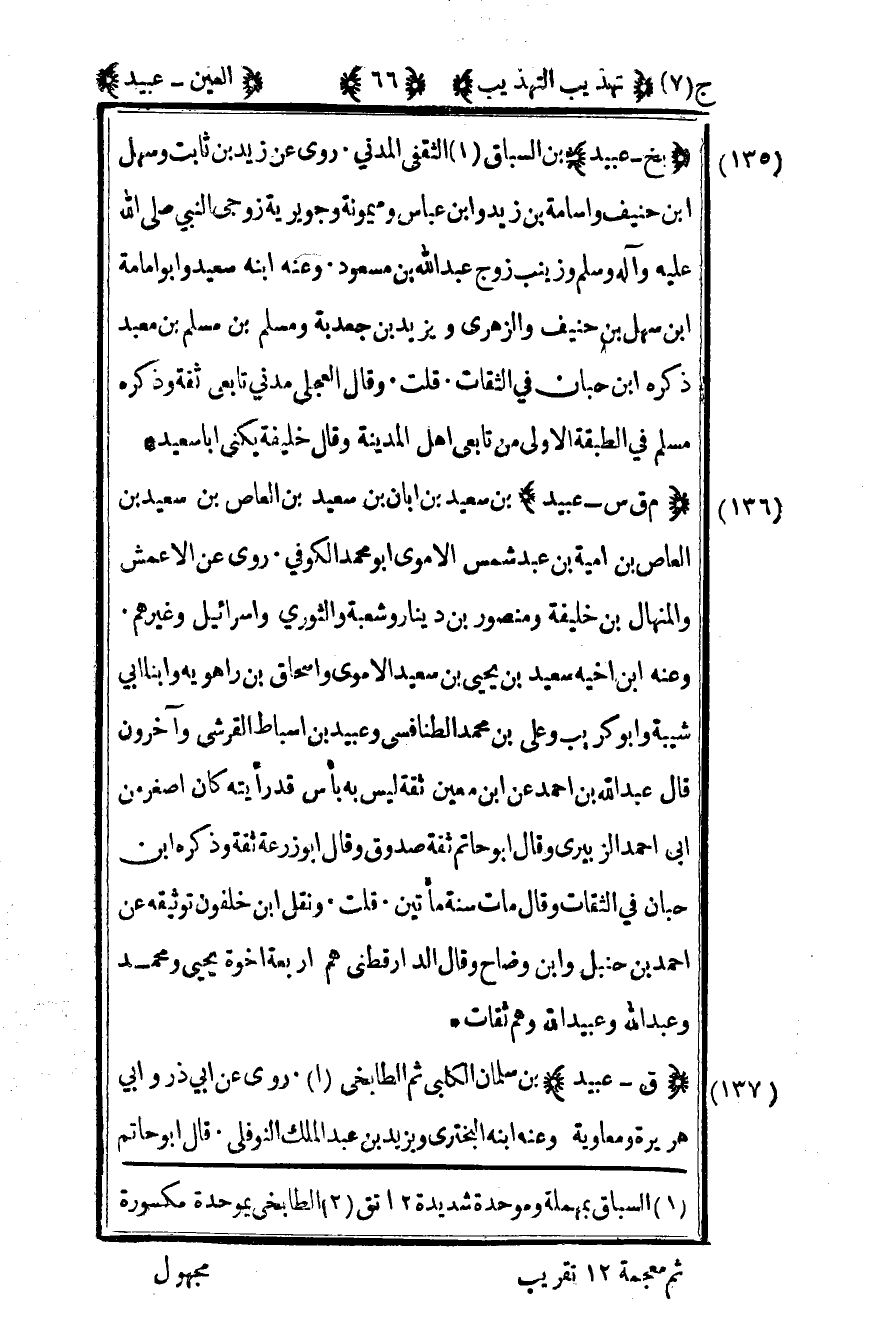 ج(٧) ﴿ تهذيب التهذيب ﴾ ﴿ ٦٦ ﴾ ﴿ العين ـ عبيد ﴾
(١٣٥) ﴿ بخ ـ عبيد ﴾ بن السباق (١) الثقفي المدني · روى عن زيد بن ثابت وسهل
ابن حنيف واسامة بن زيد وابن عباس وميمونة وجويرية زوجى النبي صلى الله
عليه وآله وسلم وزينب زوج عبدالله بن مسعود · وعنه ابنه سعيد وابوامامة
ابن سهل بن حنيف والزهرى ويزيد بن جعدبة ومسلم بن مسلم بن معبد
ذكره ابن حبان في الثقات · قلت · وقال العجلى مدني تابعى ثقة وذكره
مسلم في الطبقة الاولى من تابعى اهل المدينة وقال خليفة يكنى اباسعيد*
(١٣٦) ﴿ م ق س ـ عبيد ﴾ بن سعيد بن ابان بن سعيد بن العاص بن سعيد بن
العاص بن امية بن عبد شمس الاموى ابو محمد الكوفي · روى عن الاعمش
والمنهال بن خليفة ومنصور بن دينار وشعبة والثوري واسرائيل وغيرهم ·
وعنه ابن اخيه سعيد بن يحيى بن سعيد الاموى واسحاق بن راهويه وابنا ابي
شيبة وابو كريب وعلى بن محمد الطنافسى وعبيد بن اسباط القرشى وآخرون
قال عبدالله بن احمد عن ابن معين ثقة ليس به بأس قد رأيته كان اصغر من
ابى احمد الزبيرى وقال ابو حاتم ثقة صدوق وقال ابو زرعة ثقة وذكره ابن
حبان في الثقات وقال مات سنة مأتين · قلت · ونقل ابن خلفون توثيقه عن
احمد بن حنبل وابن وضاح وقال الدارقطنى هم اربعة اخوة يحيى ومحمـد
وعبدالله وعبيدالله وهم ثقات *
(١٣٧) ﴿ ق ـ عبيد ﴾ بن سلمان الكلبى ثم الطابخى (١) · روى عن ابي ذر وابي
هريرة ومعاوية وعنه ابنه البخترى ويزيد بن عبد الملك النوفلى · قال ابو حاتم
(١) السباق بمهملة وموحدة شديدة ١٢ تق (٢) الطابخى بموحدة مكسورة
ثم معجمة ١٢ تقريب مجهول